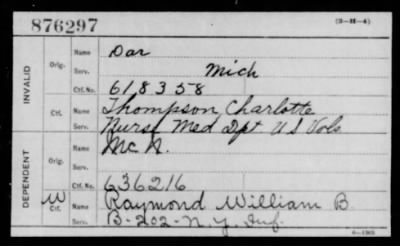 876297 (3-H-4)
INVALID
Orig. Name Dar
Serv. Mich
Ctf. No. 618358
Ctf. Name Thompson Charlotte
Serv. Nurse Med Dpt U S Vols
DEPENDENT
Orig. Name McN.
Serv.
Ctf. No. 636216
W Ctf. Name Raymond William B.
Serv. B-202-N.Y. Inf.